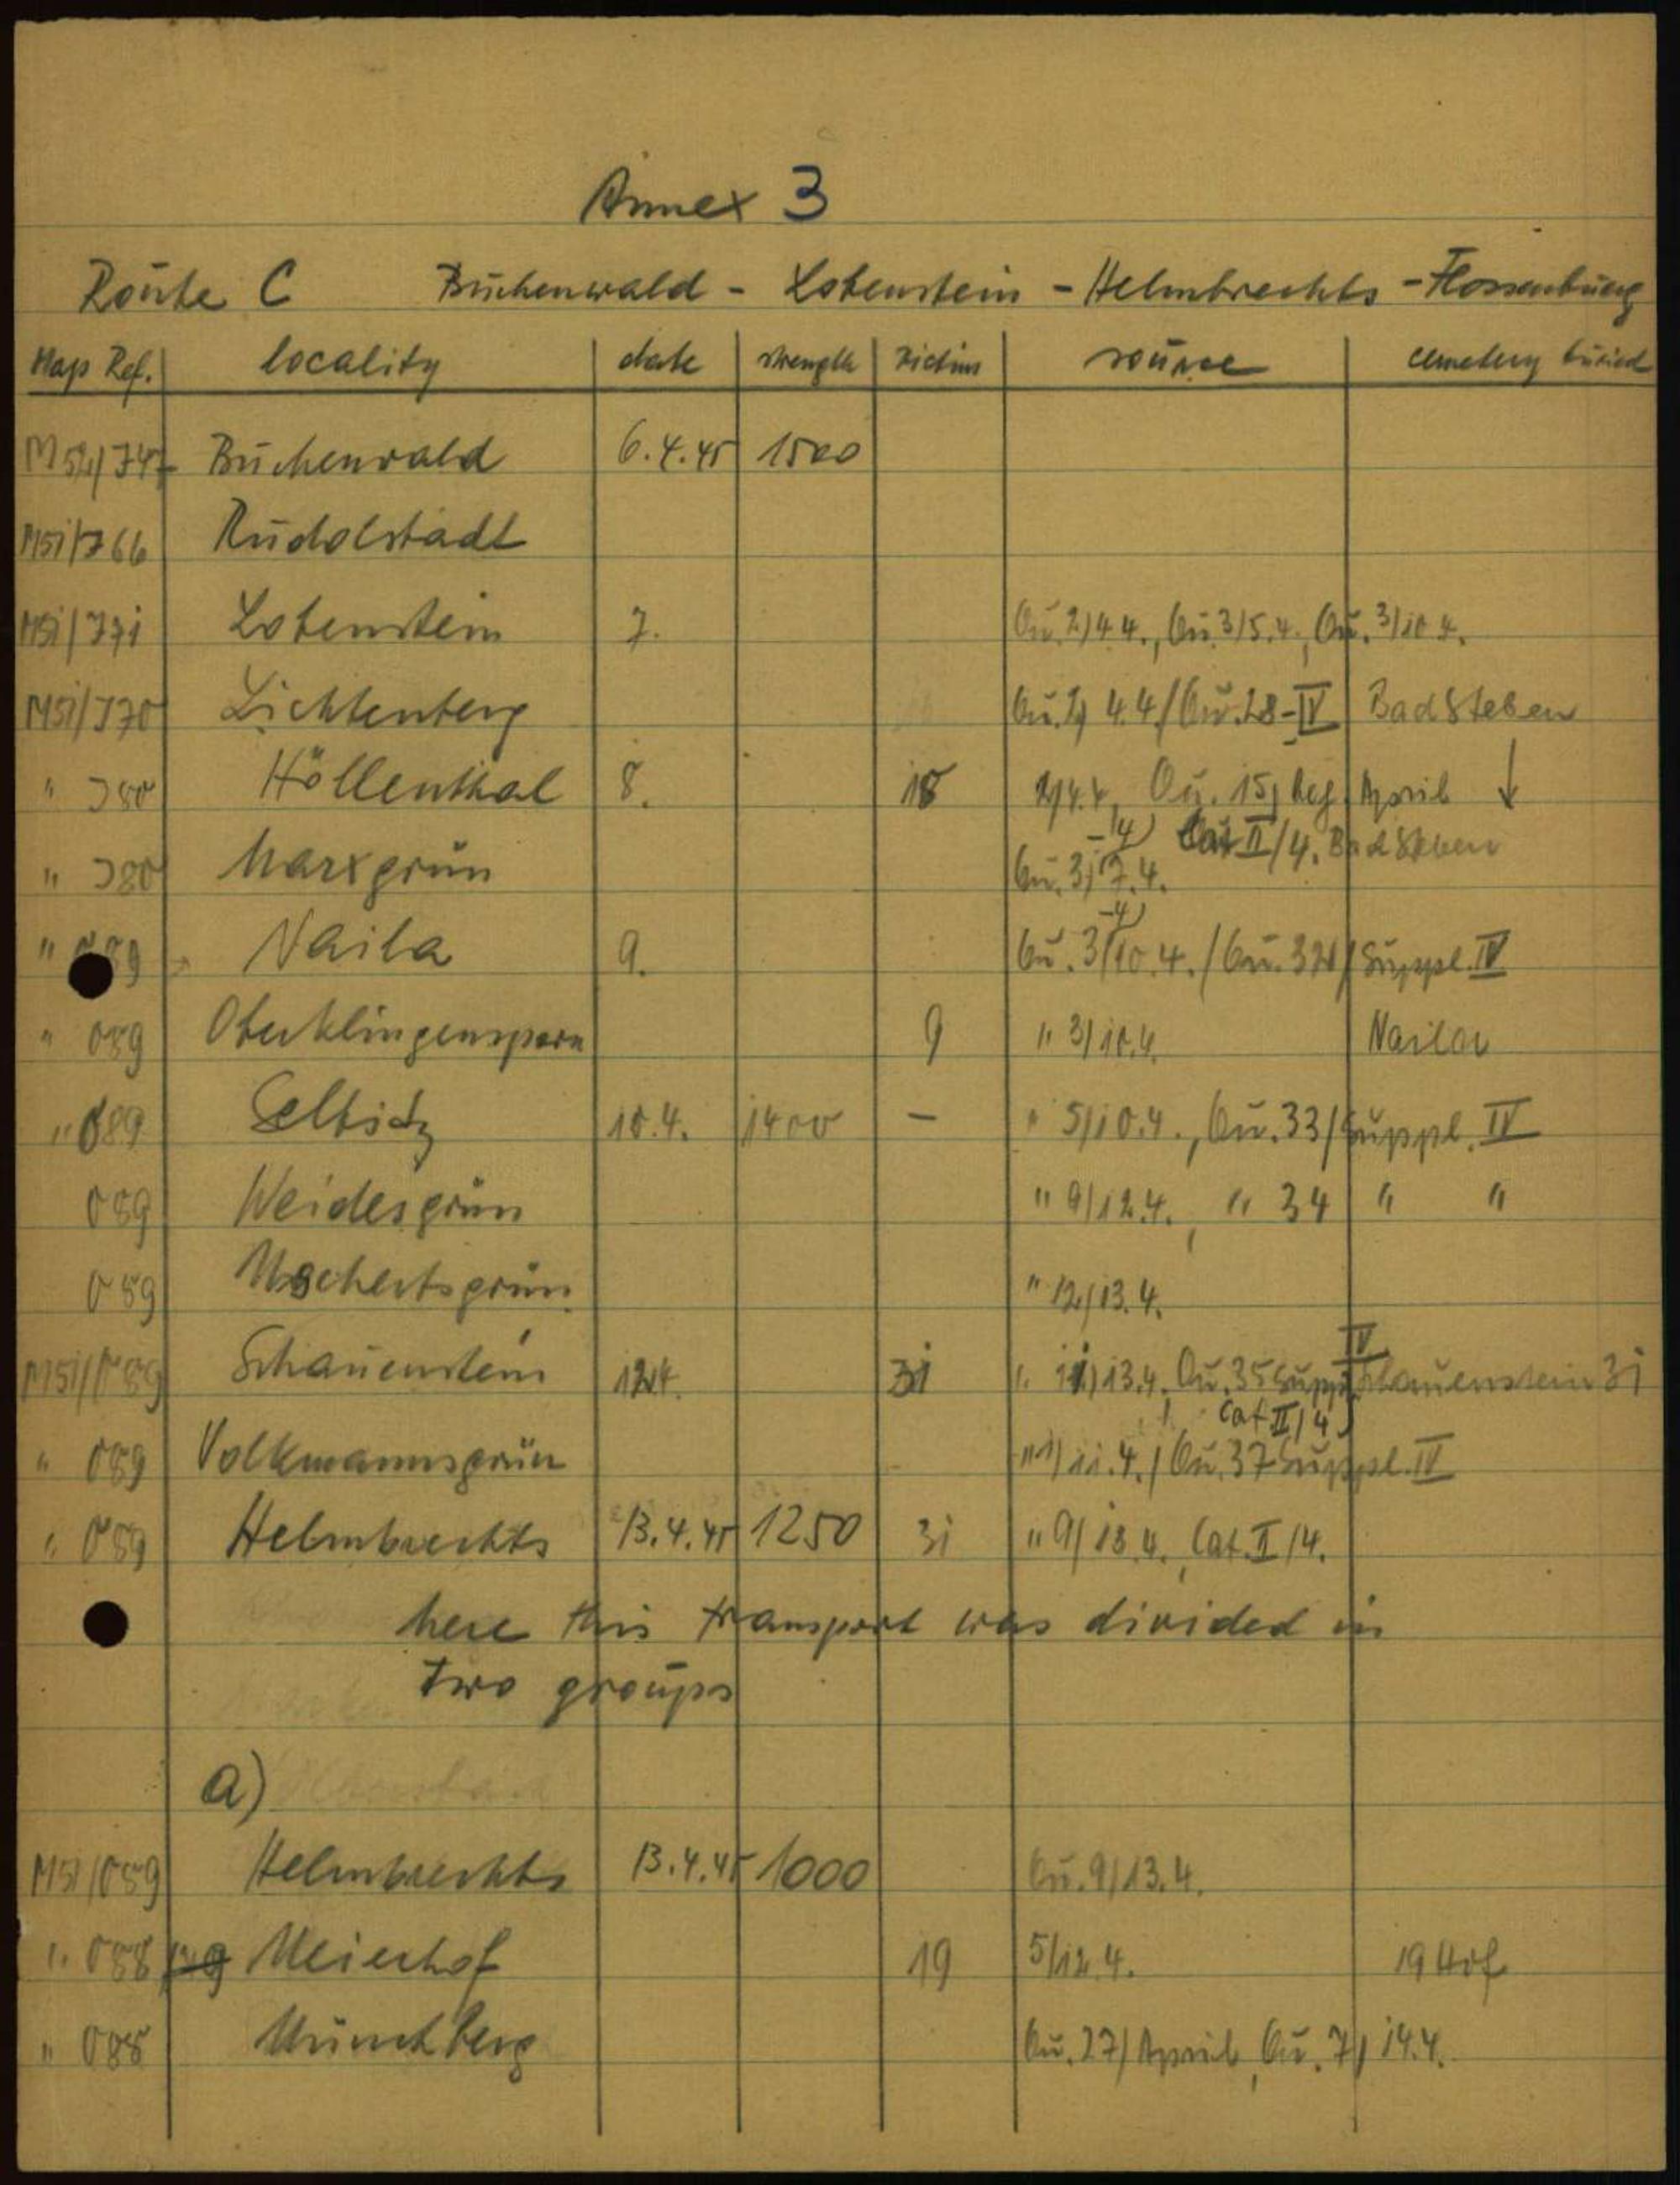 Annex 3
Route C Buchenwald - Lobenstein - Helmbrechts - Flossenbuerg
Map Ref. locality date strength Victims source cemetery buried
M52/J47 Buchenwald 6.4.45 1500
M51/J66 Rudolstadt
M51/J71 Lobenstein 7. Qu. 2/4.4., Qu. 3/5.4., Qu. 3/10.4.
M51/J70 Lichtenberg Qu. 2/ 4.4./Qu. 28-IV Bad Steben
" J80 Höllenthal 8. 18 2/4.4, Qu. 15/ April ↓
-14) Cat II/4. Bad Steben
" J80 Marxgrün Qu. 3/7.4.
-4)
" O89 Naila 9. Qu. 3/10.4./Qu. 32/Suppl. IV
" O89 Oberklingensporn 9 " 3/10.4. Naila
" O89 Selbitz 10.4. 1400 - " 5/10.4., Qu. 33/Suppl. IV
O89 Weidesgrün " 9/12.4., " 34 " "
O89 " 12/13.4.
IV
M51/O89 Schauenstein 12.4. 31 " 11/13.4. Qu. 35 Suppl. Schauenstein 31
Cat II/4)
" O89 Volkmannsgrün " 1/11.4./Qu. 37 Suppl. IV
" O89 Helmbrechts 13.4.45 1250 31 " 9/13.4., Cat. II/4.
here this transport was divided in
two groups
a)
M51/O89 Helmbrechts 13.4.45 1000 Qu. 9/13.4.
" O88 Meierhof 19 5/12.4. 19 Hof
" O88 Münchberg Qu. 27/April, Qu. 7/ 14.4.